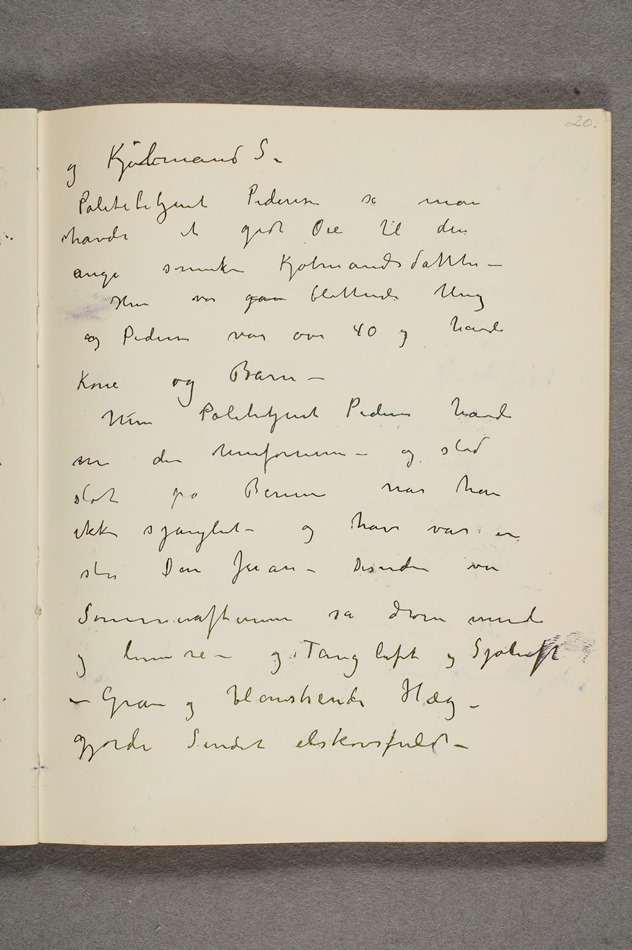 20.
og Kjøbmand S.
Politibetjent Pedersen så man
havde et godt Øie til den
unge smukke Kjøbmandsdatter –
Hun var ganske blottende Ung
og Pedersen var over 40 og havde
Kone og Barn –
Men Politibetjent Pedersen havde
den Uniformen – og stod
stöt på Benene når han
ikke sjanglet – og han var en
stor Don Juan – Desuden var
Sommeraftenerne så drømmende
og lumre – og Tangluft og Sjøluft
– Gran og blomstrende Hæg –
gjorde Sindet elskovsfuldt –